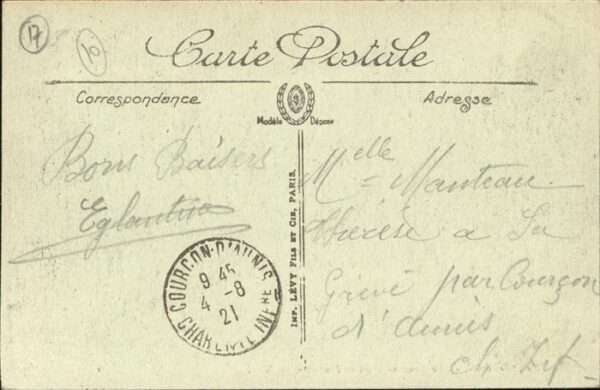 17
10
Carte Postale
Correspondance
Adresse
Modèle Déposé
Bons Baisers
Eglantine
COURCON-D'AUNIS
9 45
4 -8
21
CHARENTE INFRE
IMP. LÉVY FILS ET CIE, PARIS.
Melle Manteau
Thérèse a La
Grève par Courçon
d'Aunis
ch. Inf